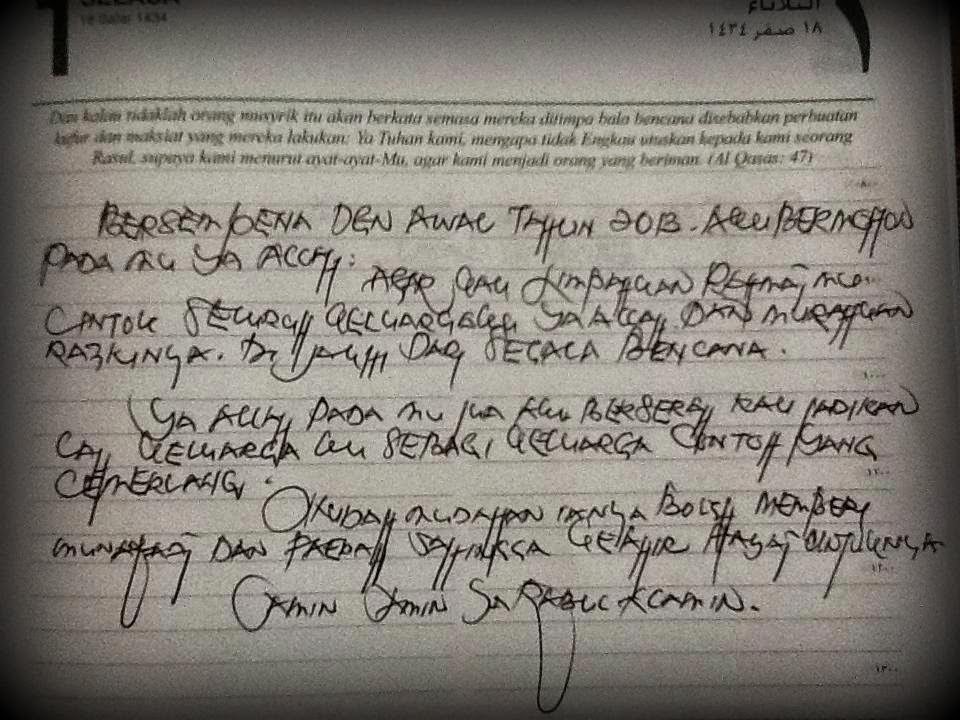 1
SELASA
18 Safar 1434
الثلاثاء
١٨ صفر ١٤٣٤
Dan kalau tidaklah orang musyrik itu akan berkata semasa mereka ditimpa bala bencana disebabkan perbuatan
kufur dan maksiat yang mereka lakukan: Ya Tuhan kami, mengapa tidak Engkau utuskan kepada kami seorang
Rasul, supaya kami menurut ayat-ayat-Mu, agar kami menjadi orang yang beriman. (Al Qasas: 47)
BERSEMPENA DEN AWAL TAHUN 2013. AKU BERMOHON
PADA MU YA ALLAH:
AGAR KAU LIMPAHKAN RAHMAT MU
CONTOH SELURUH KELUARGAKU YA ALLAH DAN MURAHKAN
RAZKINYA. DI JAUHI DARI SEGALA BENCANA.
YA ALLAH PADA MU JUA AKU BERSERAH KAU JADIKAN
LAH KELUARGA KU SEBAGAI KELUARGA CONTOH YANG
CEMERLANG.
MUDAH MUDAHAN IANYA BOLEH MEMBERI
MUNAFAAT DAN FAEDAH SEHINGGA KEAKHIR HAYAT UNTUKNYA
AMIN AMIN YA RABUL ALAMIN.
٨٠٠
١٠٠٠
١٢٠٠